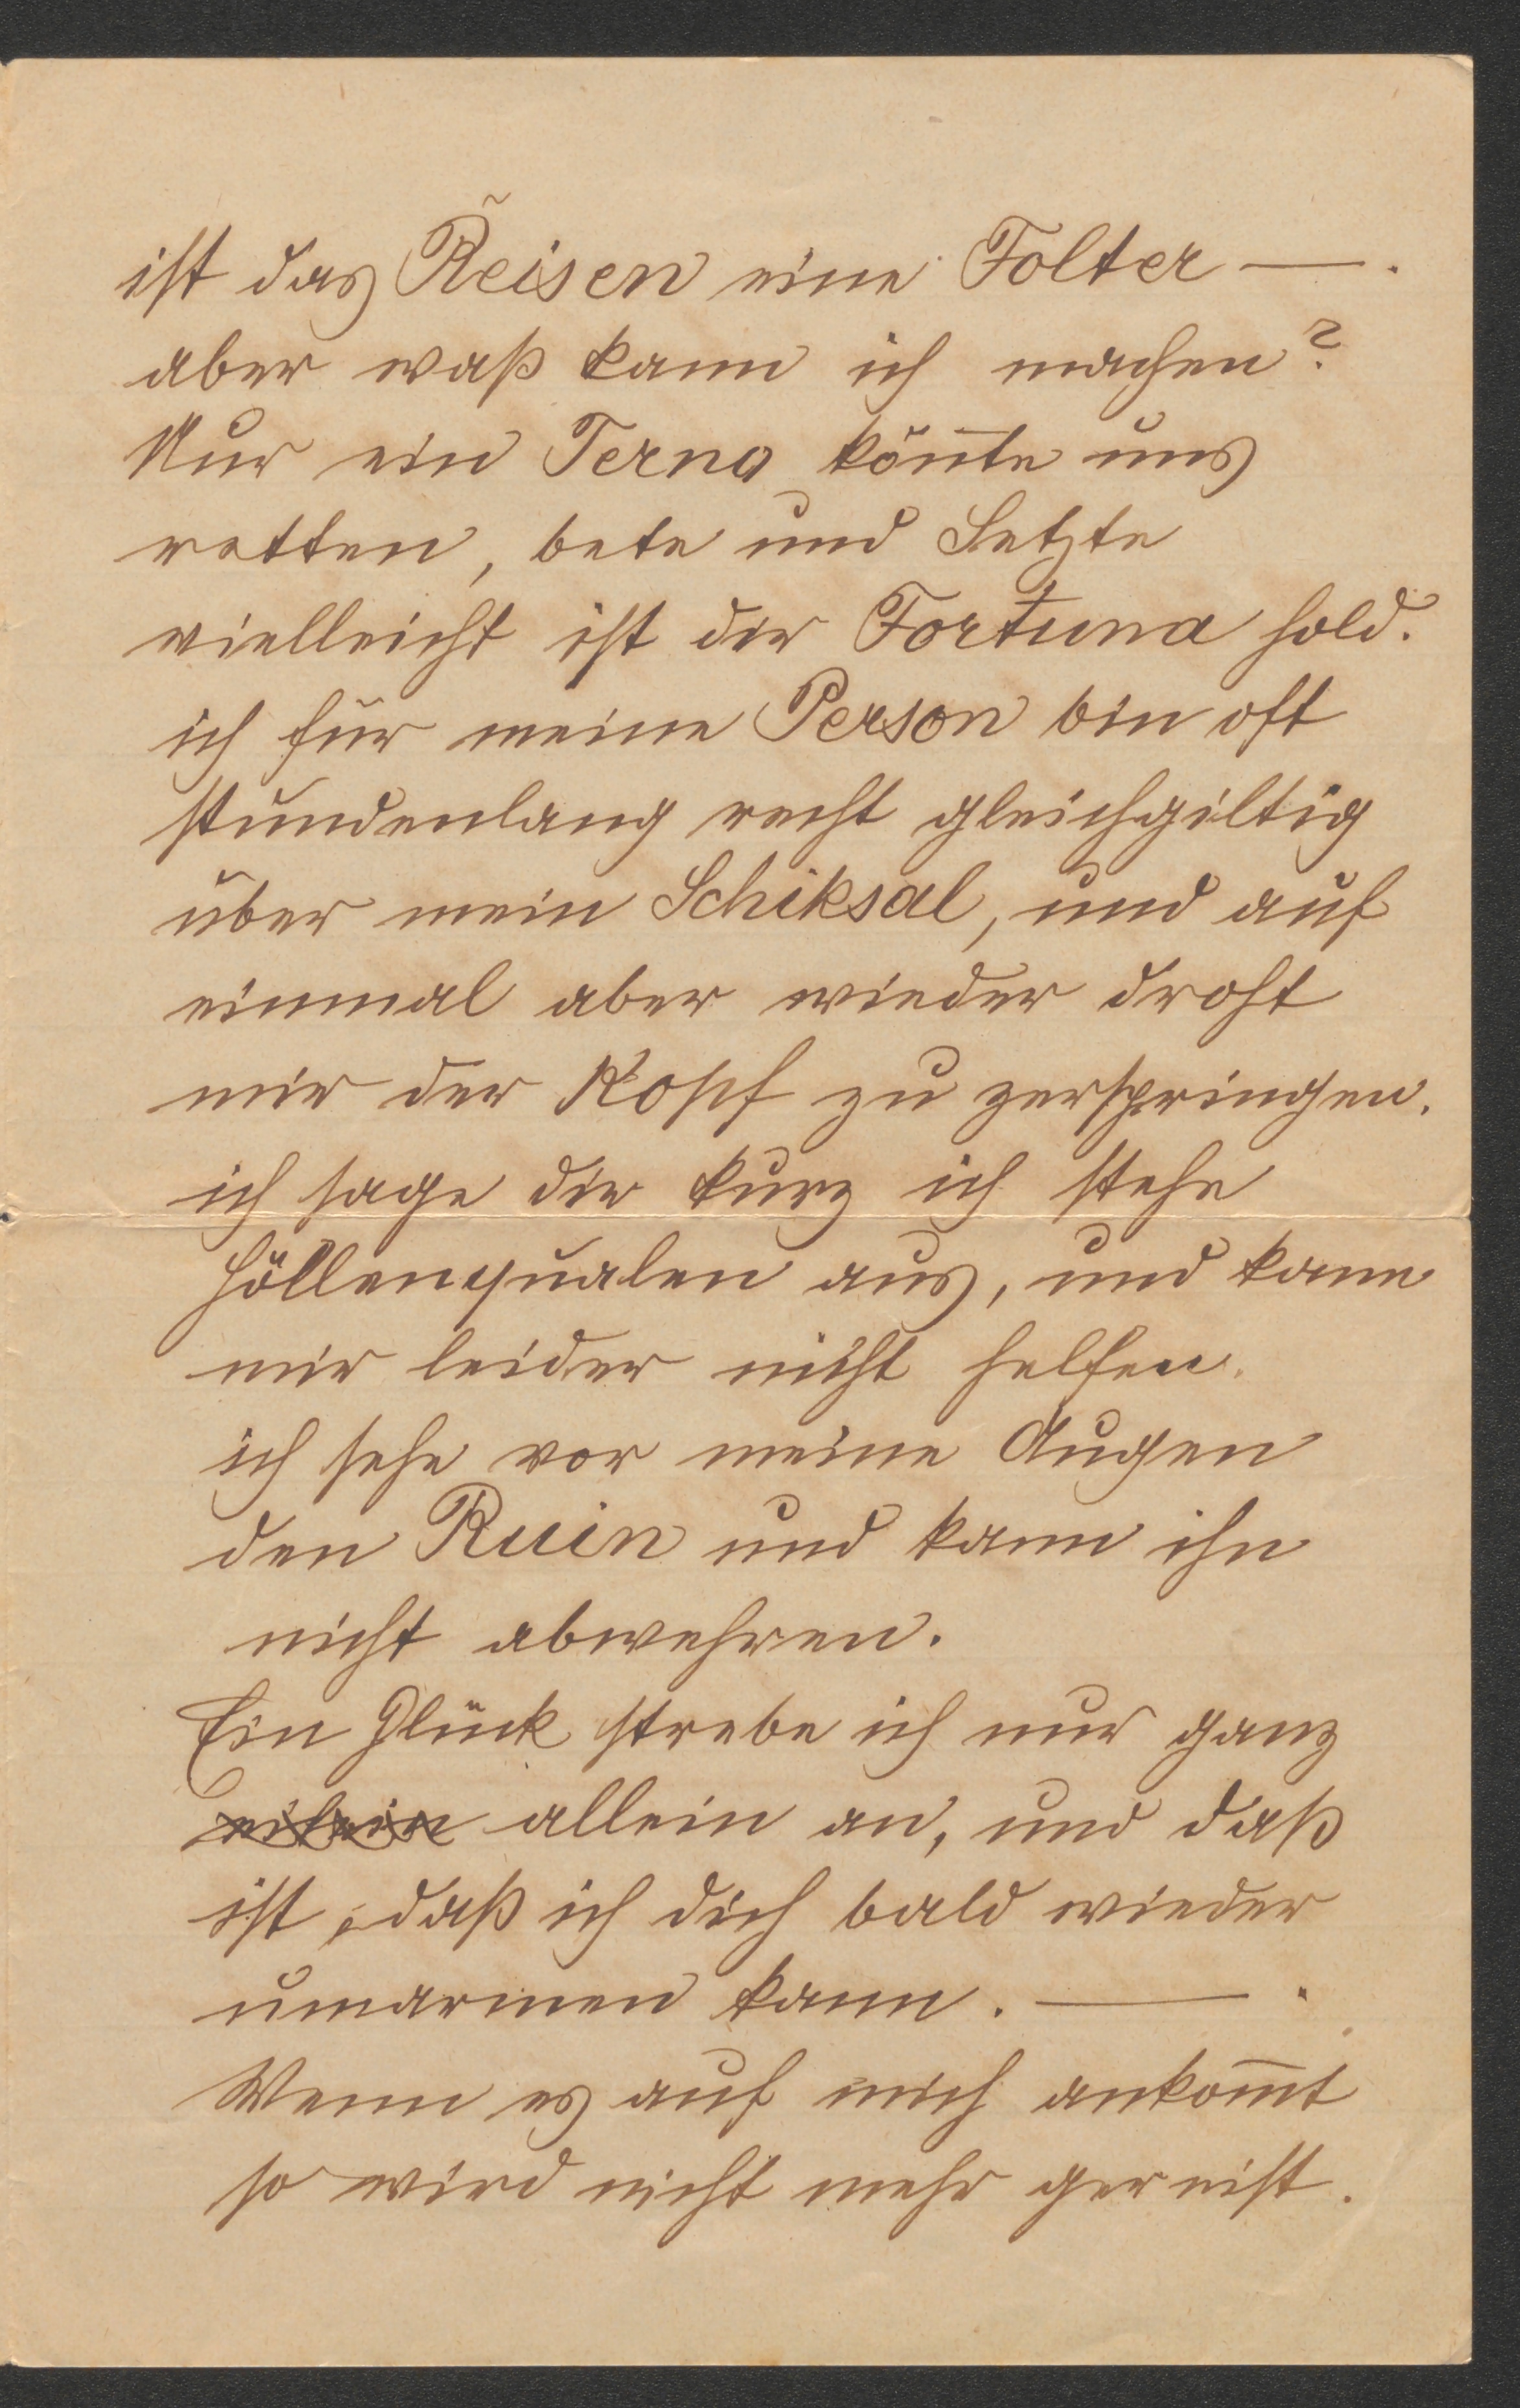 ist das Reisen eine Folter —.
aber waß kann ich machen?
Nur ein Terno kön̅te uns
retten, bete und Setzte
vielleicht ist dir Fortuna hold.
ich für meine Person bin oft
stundenlang recht gleichgiltig
über mein Schiksal, und auf
einmal aber wieder droht
mir der Kopf zu zerspringen.
ich sage dir kurz ich stehe
Höllenqualen aus, und kann
mir leider nicht helfen.
ich sehe vor meine Augen
den Ruin und kann ihn
nicht abwehren.
Ein Glück strebe ich nur ganz
allein an, und daß
ist, daß ich dich bald wieder
umarmen kann. —.
Wenn es auf mich ankom̅t
so wird nicht mehr gereist.